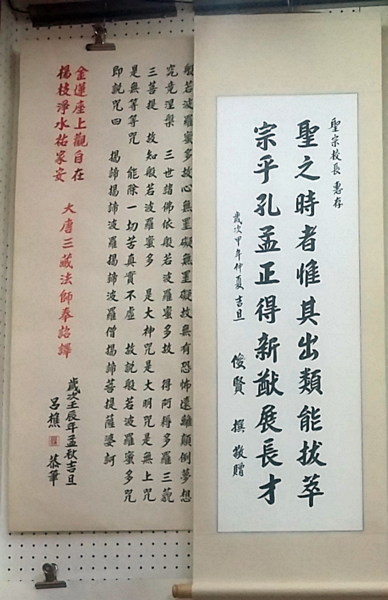 聖宗校長 惠存
聖之時者惟其出類能拔萃
宗乎孔孟正得新猷展長才
歲次甲午仲夏吉旦 俊賢 撰 敬贈
般若波羅蜜多故心無罣礙無罣礙故無有恐怖遠離顛倒夢想
究竟涅槃 三世諸佛依般若波羅蜜多故 得阿耨多羅三藐
三菩提 故知般若波羅蜜多 是大神咒是大明咒是無上咒
是無等等咒 能除一切苦真實不虛 故說般若波羅蜜多咒
即說咒曰 揭諦揭諦波羅揭諦波羅僧揭諦菩提薩婆訶
金蓮座上觀自在
楊枝淨水祐家安
大唐三藏法師奉詔譯
歲次壬辰年孟秋吉旦
呂樵 恭筆